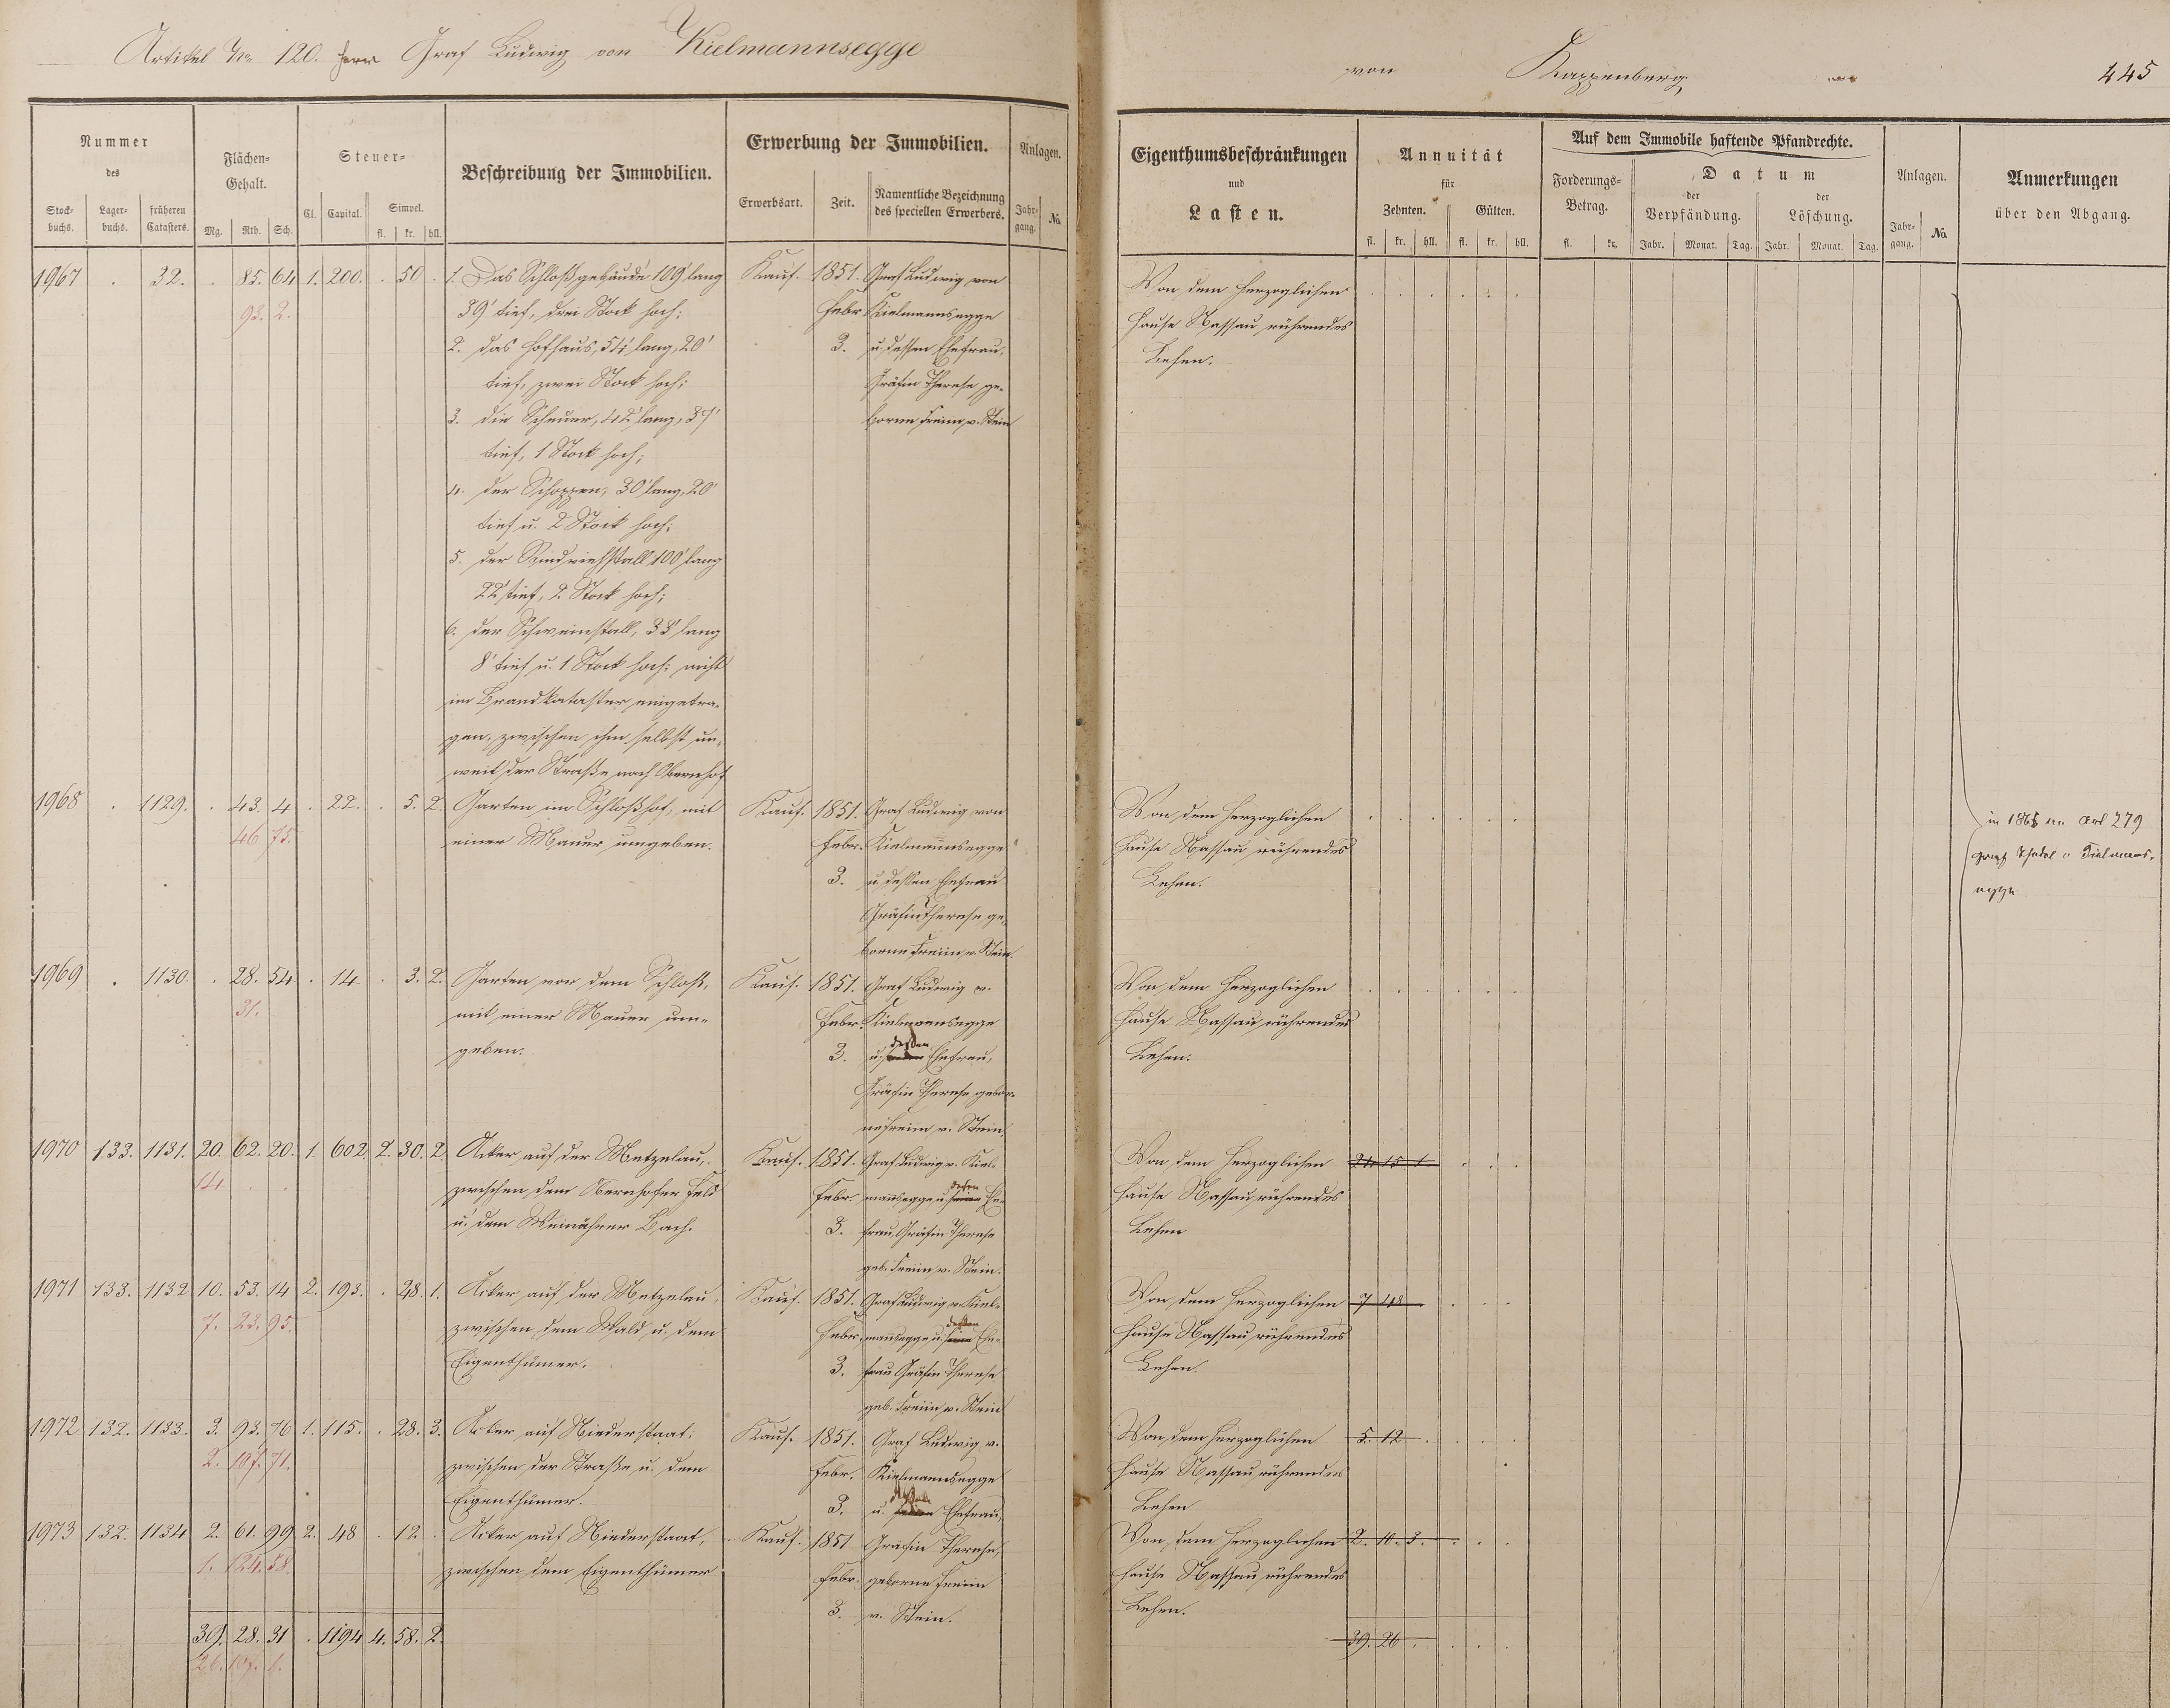 Artikel No 120. Herr Graf Ludwig von Kielmannsegge
von Kappenberg
445
Nummer
des
Stock-
buchs.
Lager-
buchs.
früheren
Catasters.
Flächen-
Gehalt.
Mg. Rth. Sch.
Steuer-
Cl. Capital. Simpel.
fl. kr. hll.
Beschreibung der Immobilien.
Erwerbung der Immobilien.
Erwerbsart. Zeit.
Namentliche Bezeichnung
des speciellen Erwerbers.
Anlagen.
Jahr-
gang. No.
Eigenthumsbeschränkungen
und
Lasten.
Annuität
für
Zehnten. Gülten.
fl. kr. hll. fl. kr. hll.
Auf dem Immobile haftende Pfandrechte.
Forderungs-
Betrag.
fl. kr.
Datum
der
Verpfändung.
der
Löschung.
Jahr. Monat. Tag. Jahr. Monat. Tag.
Anlagen.
Jahr-
gang. No.
Anmerkungen
über den Abgang.
1967 . 32. . 85. 64 1. 200. . 50 .
93. 2.
1. Das Schloßgebäude 109' lang
39' tief, drei Stock hoch;
2. das Hofhaus, 54' lang, 20'
tief, zwei Stock hoch;
3. die Scheuer, 42' lang, 37'
tief, 1 Stock hoch;
4. der Schoppen, 30' lang, 20'
tief u. 2 Stock hoch;
5. der Rindviehstall 100' lang
22' tief, 2 Stock hoch;
6. der Schweinstall, 33' lang
8' tief u. 1 Stock hoch; nicht
im Brandkataster eingetra-
gen, zwischen ihm selbst un-
weit der Straße nach Obernhof
Kauf. 1851. Graf Ludwig von
Febr. Kielmannsegge
3. u. dessen Ehefrau,
Gräfin Therese ge-
borne Freiin v. Stein
Von dem Herzoglichen
Hause Nassau rührendes
Lehen.
1968 . 1129. . 43. 4 . 22. . 5. 2.
46 75.
Garten im Schloßhof, mit
einer Mauer umgeben.
Kauf. 1851. Graf Ludwig von
Febr. Kielmannsegge
3. u. dessen Ehefrau
Gräfin Therese ge-
borne Freiin v. Stein.
Von dem Herzoglichen
Hause Nassau rührendes
Lehen.
in 1865 Art 279
Graf v
egge
1969 . 1130. . 28. 54 . 14 . 3. 2.
31.
Garten vor dem Schloß,
mit einer Mauer um-
geben.
Kauf. 1851. Graf Ludwig v.
Febr. Kielmannsegge
dessen
3. u. Ehefrau,
Gräfin Therese gebor-
ne Freiin v. Stein.
Von dem Herzoglichen
Hause Nassau rührendes
Lehen.
1970 133. 1131. 20. 62. 20. 1. 602. 2. 30. 2.
14 . .
Acker auf der Metzelau,
zwischen dem Obernhofer Feld
u. dem Weinährer Bach.
Kauf. 1851. Graf Ludwig v. Kiel-
dessen
Febr. mannsegge u. seine Ehe-
3. frau, Gräfin Therese
geb. Freiin v. Stein.
Von dem Herzoglichen 24 15 1
Hause Nassau rührendes
Lehen
1971 133. 1132 10. 53. 14 2. 193. . 48. 1.
7. 23. 95.
Acker auf der Metzelau,
zwischen dem Wald u. dem
Eigenthümer.
Kauf. 1851. Graf Ludwig v. Kiel-
dessen
Febr. mannsegge u. seine Ehe-
3. frau Gräfin Therese
geb. Freiin v. Stein
Von dem Herzoglichen 7 48
Hause Nassau rührendes
Lehen.
1972 132. 1133. 3. 93. 76 1. 115. . 28. 3.
2. 107. 71.
Acker auf Niederstaat,
zwischen der Straße u. dem
Eigenthümer.
Kauf. 1851. Graf Ludwig v.
Febr. Kielmannsegge
dessen
3. u. Ehefrau,
Von dem Herzoglichen 5. 12
Hause Nassau rührendes
Lehen
1973 132. 1134 2. 61. 99 2. 48 . 12. .
1. 124. 58.
Acker auf Niederstaat,
zwischen dem Eigenthümer
Kauf. 1851 Gräfin Therese,
Febr. geborne Freiin
3. v. Stein.
Von dem Herzoglichen 2. 10. 3.
Hause Nassau rührendes
Lehen.
39. 28. 31 . 1194 4. 58. 2.
26. 107. 1.
39. 26